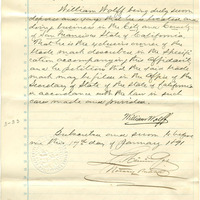 William Wolff being duly sworn
deposes and says that he is located and
doing business in the City and County
of San Francisco State of California
That he is the exclusive owner of the
Trade mark described in the Specification
accompanying this Affidavit
and he petitions that the said trade
mark may be filed in the Office of the
Secretary of State of the State of California
in accordance with the law in such
case made and provided.
William Wolff
Subscribed and sworn to before
me this day of January 1891
Notary Public